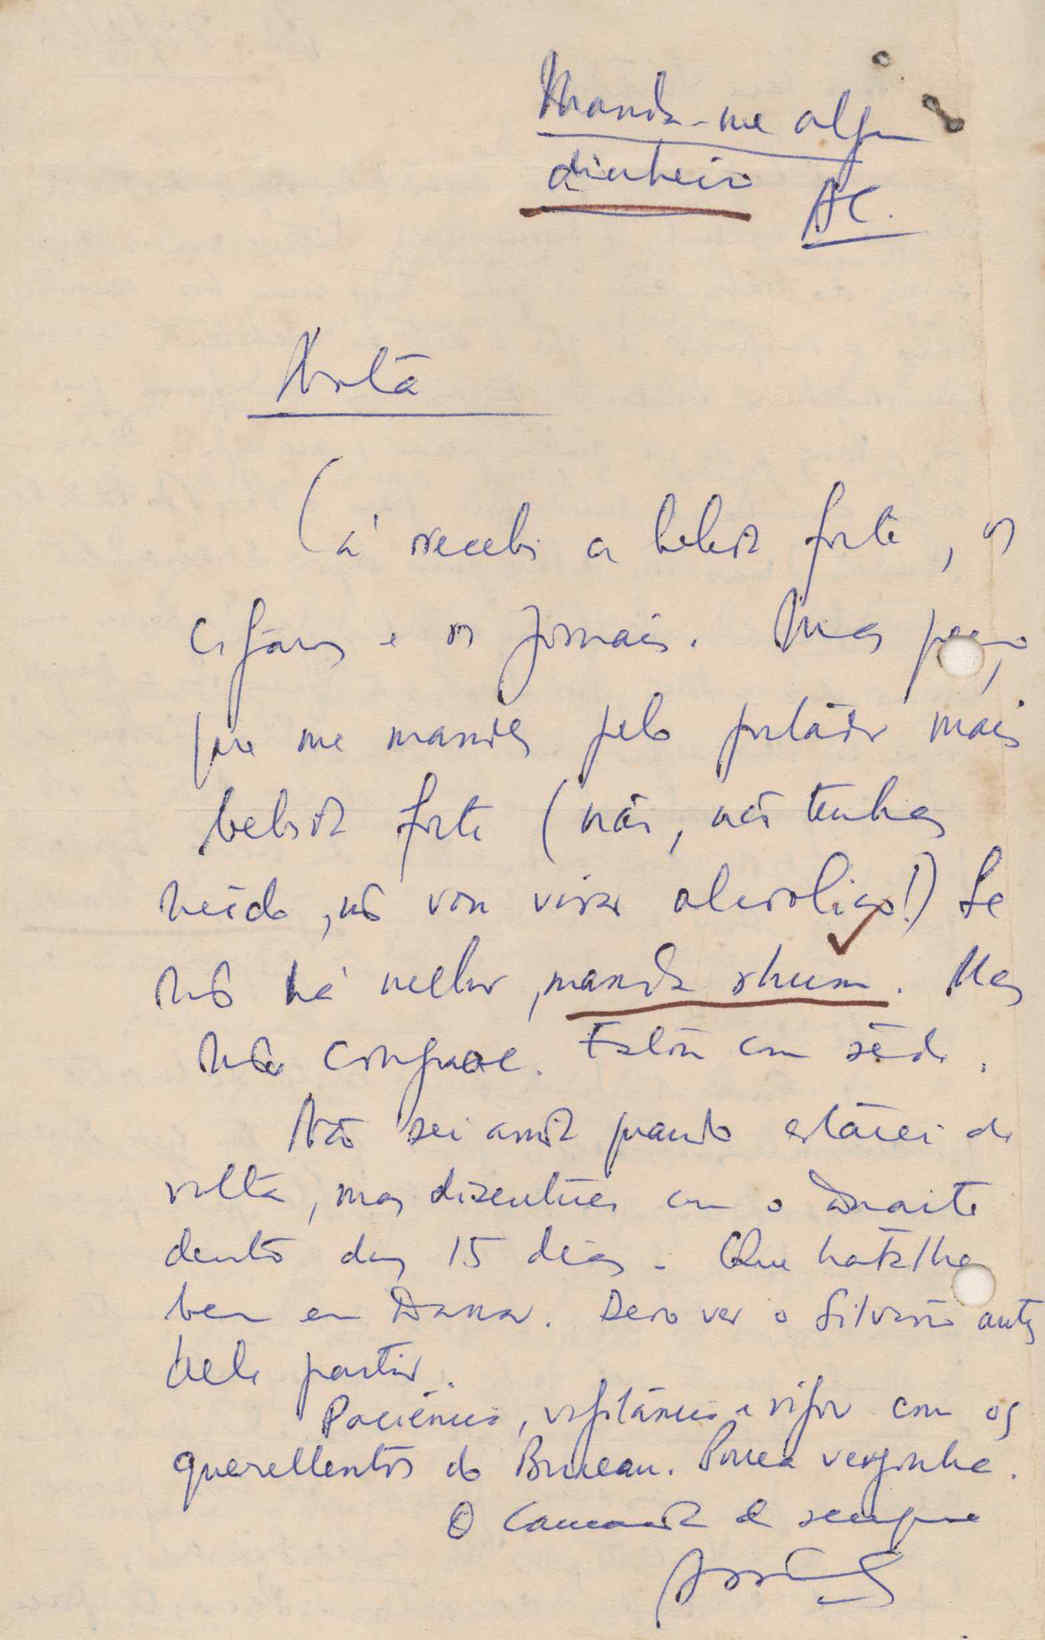 Manda-me algum
dinheiro
AC.
Nota
Cá recebi a bebida forte, os
cigarros e os jornais. Mas peço,
que me mandes pelo portador mais
bebida forte (não, não tenhas
medo, não vou virar alcoolico!) Se
não há melhor, manda rhum. Mas
não conhaque. Estou com sêde.
Não sei ainda quando estarei de
volta, mas discutirei com o Duarte
dentro duns 15 dias. Que trabalhe
bem em Dakar. Devo ver o Silvério antes
dele partir.
Paciência, vigilância e vigor com os
querellentos do Bureau. Pouca vergonha.
O Camarada de sempre